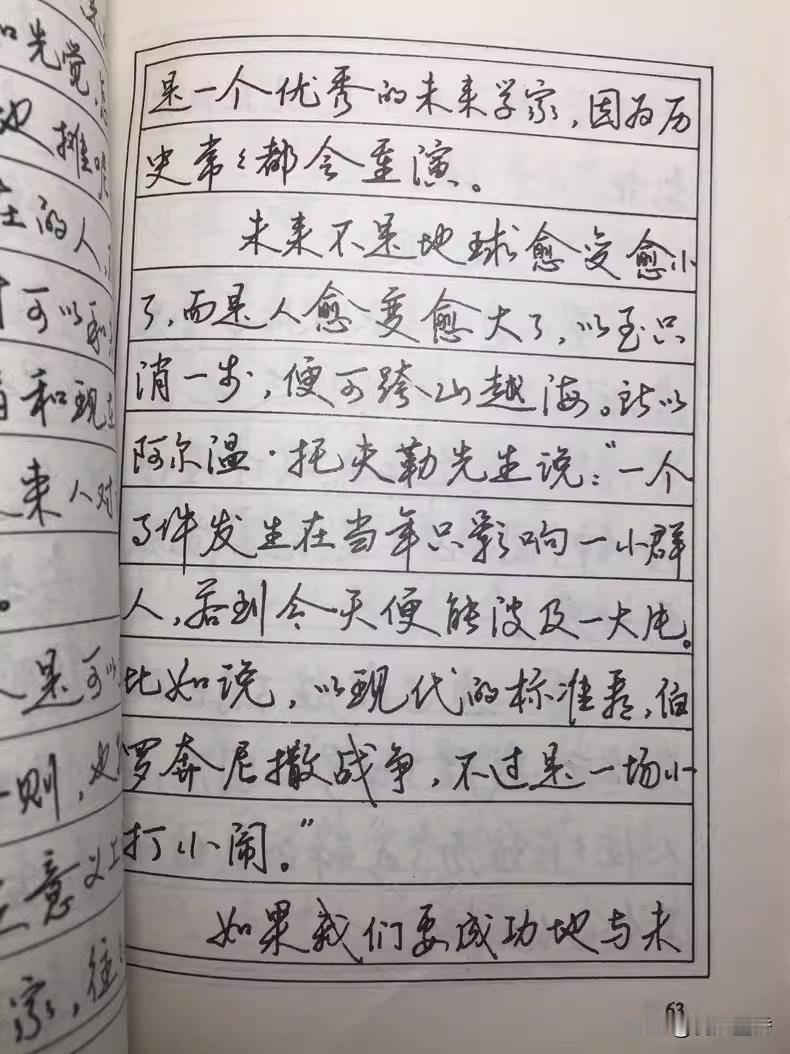 是一个优秀的未来学家，因为历
史常々都会重演。
未来不是地球愈变愈小
了，而是人愈变愈大了，以至只
消一步，便可跨山越海。所以
阿尔温·托夫勒先生说：“一个
事件发生在当年只影响一小群
人，若到今天便能波及一大片。
比如说，以现代的标准看，伯
罗奔尼撒战争，不过是一场小
打小闹。”
如果我们要成功地与未
63
和先觉，
他 摊
在的人，
可以和
和现在
来人对
。
人是可以
一则，也
意义上
家，往